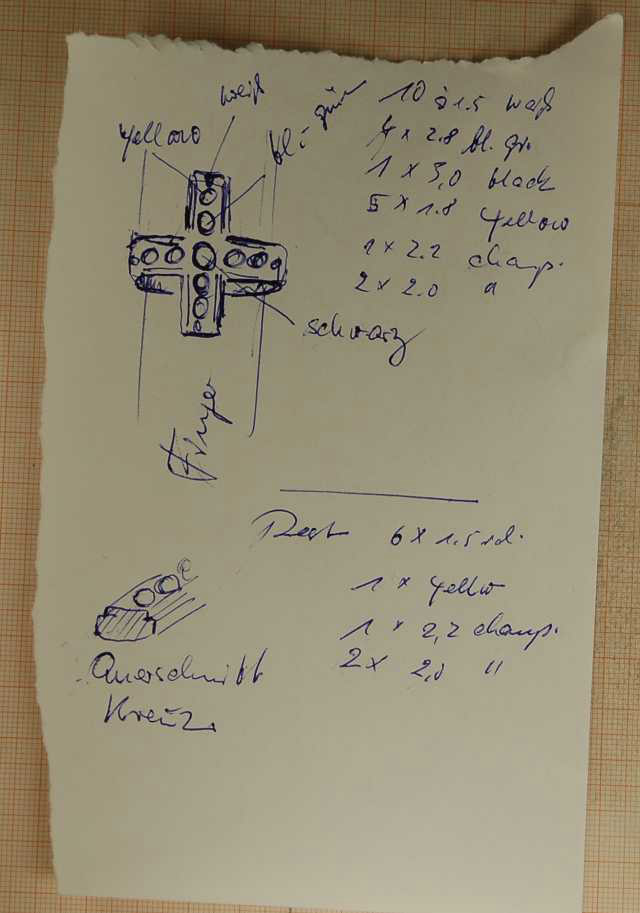 weiß
yellow
bl. grün
10 à 1.5 weiß
4 x 2.8 bl. gr.
1 x 3,0 black
5 x 1.8 yellow
1 x 2.2 champ.
2 x 2.0 "
schwarz
Finger
Rest 6 x 1.5
1 x yellow
1 x 2,2 champ.
2 x 2,0 "
Querschnitt
Kreuz